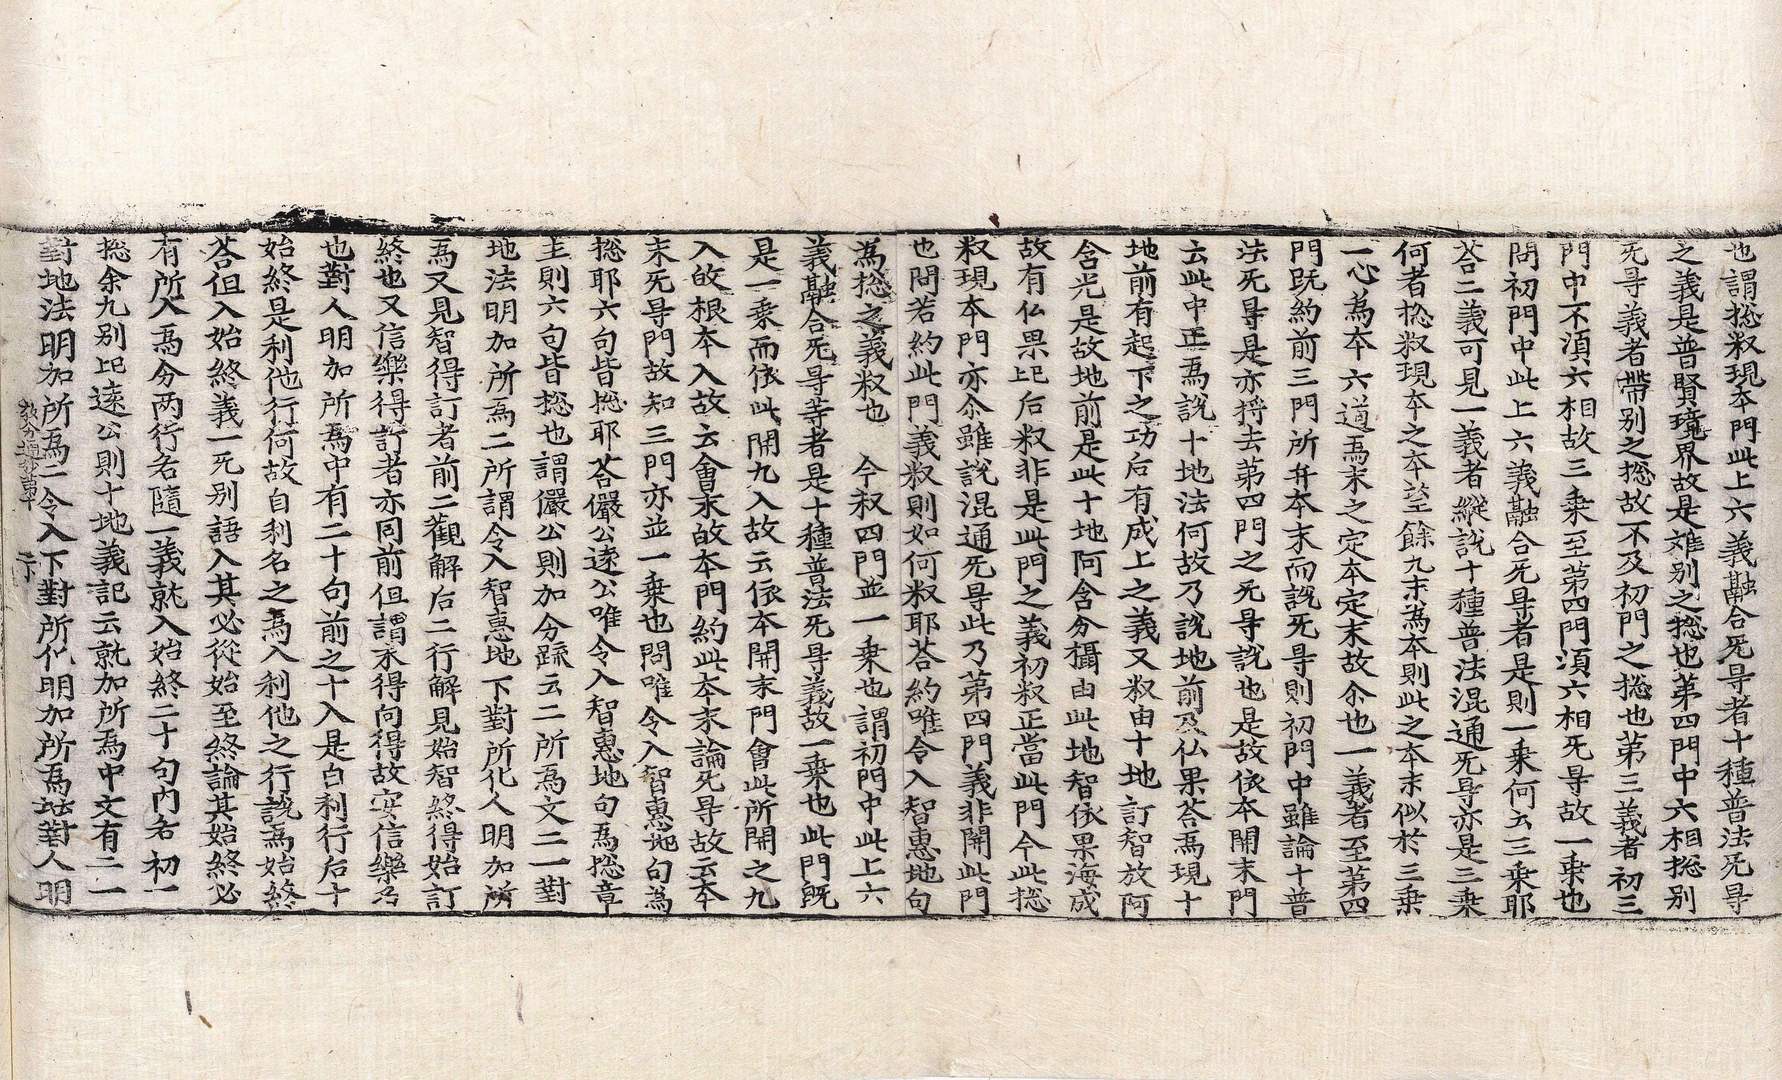 也謂揔叙現本門此上六義融合旡㝵者十種普法旡㝵
之義是普賢境界故是難別之揔也苐四門中六相揔別
旡㝵義者帶別之揔故不及初門之揔也苐三義者初三
門中不湏六相故三乗至苐四門湏六相旡㝵故一乗也
問初門中此上六義融合旡㝵者是則一乗何云三乗耶
荅二義可見一義者縱說十種普法混通旡㝵亦是三乗
何者揔叙現本之本望餘九末為本則此之本末似於三乗
一心為本六道爲末之定本定末故尒也一義者至苐四
門既約前三門所弁本末而說旡㝵則初門中雖論十普
法旡㝵是亦捋去苐四門之旡㝵說也是故依本開末門
云此中正爲說十地法何故乃說地前及仏果荅爲現十
地前有起下之功后有成上之義又叙由十地訂智放阿
含光是故地前是此十地阿含分攝由此地智依果海成
故有仏果已后叙非是此門之義初叙正當此門今此揔
叙現本門亦尒雖說混通旡㝵此乃苐四門義非開此門
也問若約此門義叙則如何叙耶荅約唯令入智惠地句
為揔之義叙也　今叙四門並一乗也謂初門中此上六
義融合旡㝵等者是十種普法旡㝵義故一乗也此門既
是一乗而依此開九入故云依本開末門會此所開之九
入㱕根本入故云會末㱕本門約此本末論旡㝵故云本
末旡㝵門故知三門亦並一乗也問唯令入智惠地句為
揔耶六句皆揔耶荅儼公遠公唯令入智惠地句爲揔章
主則六句皆揔也謂儼公則加分䟽云二所爲文二一對
地法明加所爲二所謂令入智惠地下對所化人明加所
爲又見智得訂者前二觀解后二行解見始智終得始訂
終也又信樂得訂者亦同前但謂未得向得故安信樂名
也對人明加所爲中有二十句前之十入是自利行后十
始終是利他行何故自利名之爲入利他之行說爲始終
荅但入始終義一旡別語入其必從始至終論其始終必
有所入爲分两行名隨一義就入始終二十句內名初一
揔余九別也遠公則十地義記云就加所爲中文有二一
對地法明加所爲二令入下對所化明加所爲㘴對人明
教分通抄苐十　二